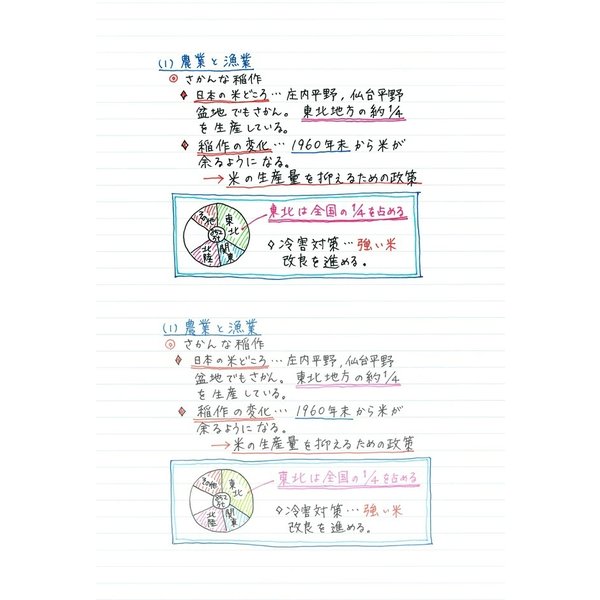 (1) 農業と漁業
◎ さかんな稲作
♦ 日本の米どころ… 庄内平野, 仙台平野
盆地でもさかん。 東北地方の約1/4
を生産している。
♦ 稲作の変化… 1960年末から米が
余るようになる。
→ 米の生産量を抑えるための政策
東北は全国の1/4を占める
その他
東北
関東
北陸
◇冷害対策…強い米
改良を進める。
(1) 農業と漁業
◎ さかんな稲作
♦ 日本の米どころ… 庄内平野, 仙台平野
盆地でもさかん。 東北地方の約1/4
を生産している。
♦ 稲作の変化… 1960年末から米が
余るようになる。
→ 米の生産量を抑えるための政策
東北は全国の1/4を占める
その他
東北
関東
北陸
◇冷害対策…強い米
改良を進める。